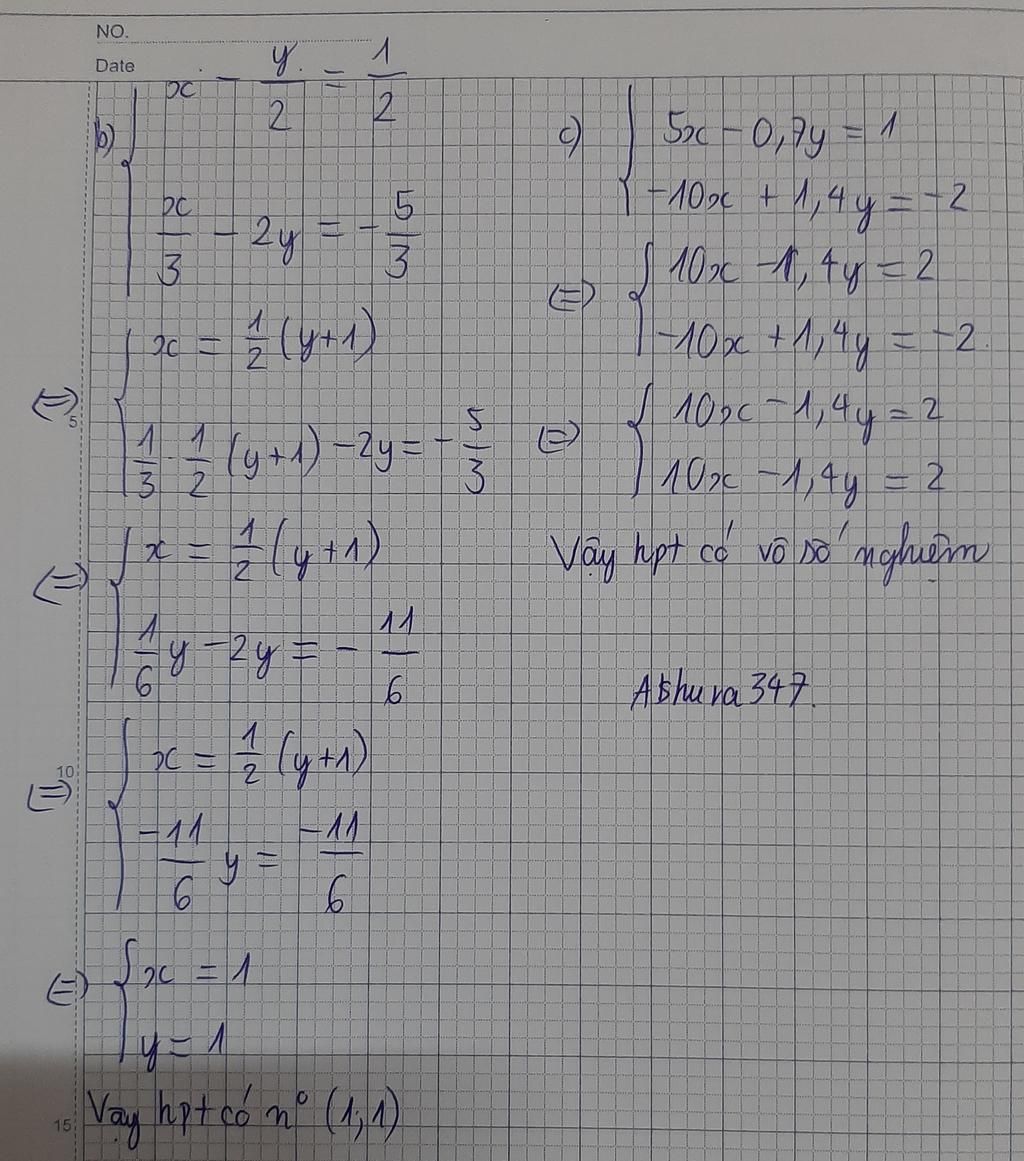 NO.
Date
b) { x - y/2 = 1/2
x/3 - 2y = -5/3
5
⇔ { x = 1/2 (y+1)
1/3 · 1/2 (y+1) - 2y = -5/3
⇔ { x = 1/2 (y+1)
1/6 y - 2y = - 11/6
10
⇔ { x = 1/2 (y+1)
-11/6 y = -11/6
⇔ { x = 1
y = 1
15
Vậy hpt có n° (1;1)
c) { 5x - 0,7y = 1
-10x + 1,4y = -2
⇔ { 10x - 1,4y = 2
-10x + 1,4y = -2.
⇔ { 10x - 1,4y = 2
10x - 1,4y = 2
Vậy hpt có vô số nghiệm